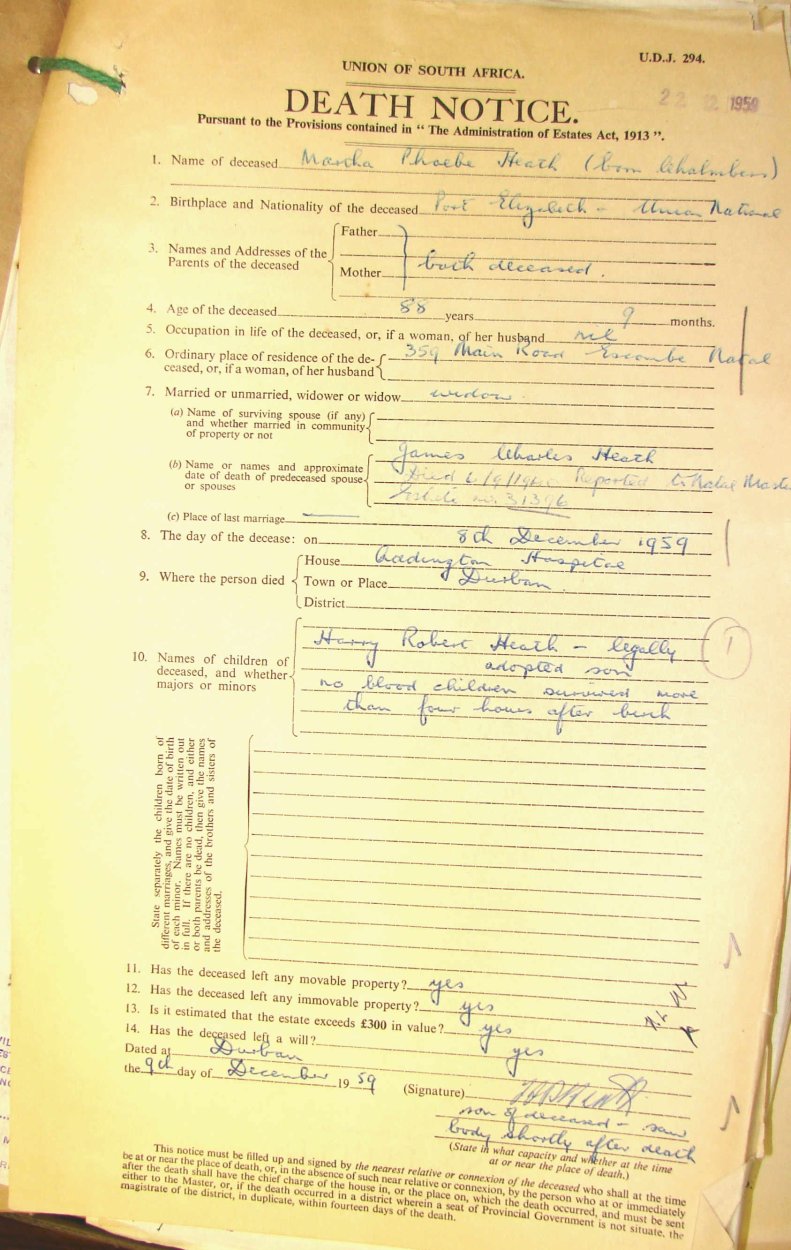 U.D.J. 294.
UNION OF SOUTH AFRICA.
DEATH NOTICE.
22 12 1959
Pursuant to the Provisions contained in "The Administration of Estates Act, 1913".
1. Name of deceased Martha Phoebe Heath (born Chalmbers)
2. Birthplace and Nationality of the deceased Port Elizabeth - Union National
3. Names and Addresses of the Parents of the deceased
Father
Mother
both deceased.
4. Age of the deceased 88 years 9 months.
5. Occupation in life of the deceased, or, if a woman, of her husband nil
6. Ordinary place of residence of the de-
ceased, or, if a woman, of her husband
359 Main Road Escombe Natal
7. Married or unmarried, widower or widow widow.
(a) Name of surviving spouse (if any)
and whether married in community
of property or not
(b) Name or names and approximate
date of death of predeceased spouse
or spouses
James Charles Heath
Died Reported to Natal Master
Estate no. 31396
(c) Place of last marriage
8. The day of the decease: on 8th December 1959
9. Where the person died
House Addington Hospital
Town or Place Durban.
District
10. Names of children of
deceased, and whether
majors or minors
Harry Robert Heath - legally
adopted son
no blood children survived more
than four hours after birth
1
State separately the children born of
different marriages, and give the date of birth
of each minor. Names must be written out
in full. If there are no children, and either
or both parents be dead, then give the names
and addresses of the brothers and sisters of
the deceased.
11. Has the deceased left any movable property? yes
12. Has the deceased left any immovable property? yes
13. Is it estimated that the estate exceeds £300 in value? yes
14. Has the deceased left a will? yes
Dated at Durban
the 9th day of December 1959
(Signature)
son of deceased - saw
body shortly after death
(State in what capacity and whether at the time
at or near the place of death.)
This notice must be filled up and signed by the nearest relative or connexion of the deceased who shall at the time
be at or near the place of death, or, in the absence of such near relative or connexion, by the person who at or immediately
after the death shall have the chief charge of the house in, or the place on, which the death occurred, and must be sent
either to the Master, or, if the death occurred in a district wherein a seat of Provincial Government is not situate, the
magistrate of the district, in duplicate, within fourteen days of the death.